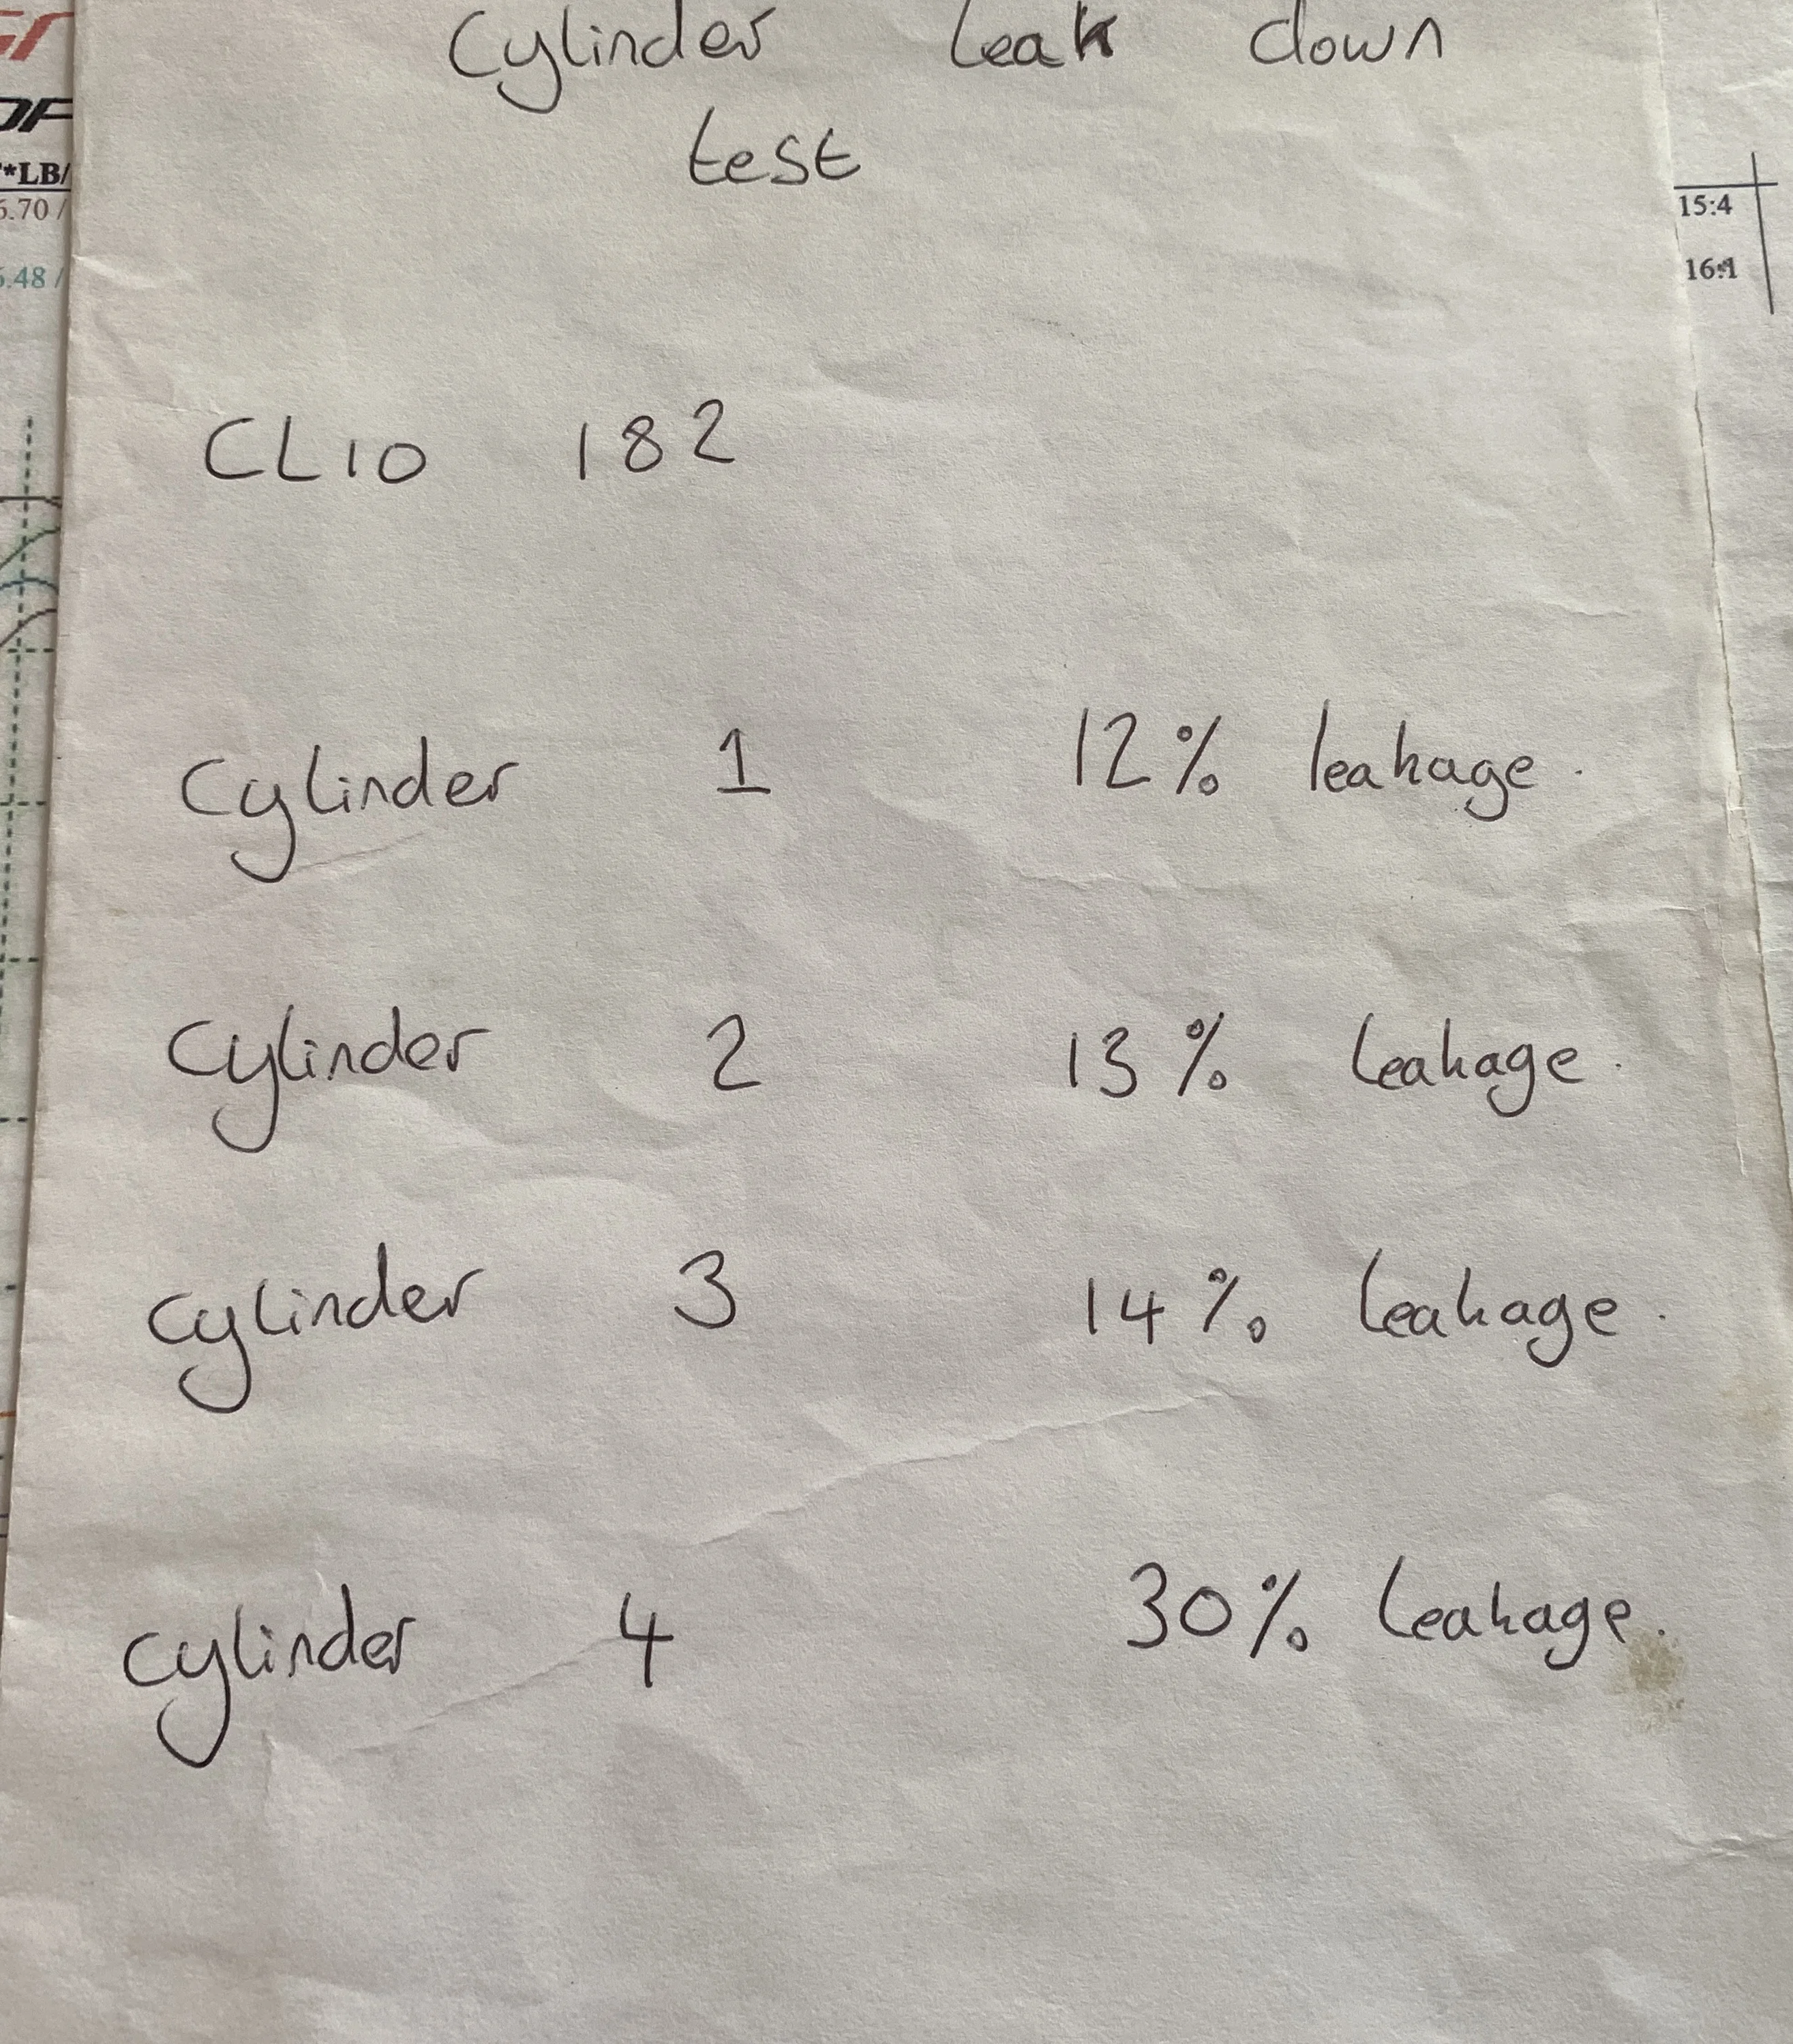 Cylinder Leak down
test
*LB/
6.70 /
15:4
6.48 /
16:1
CLIO 182
Cylinder 1 12% leakage.
Cylinder 2 13% leakage.
Cylinder 3 14% leakage.
Cylinder 4 30% leakage.